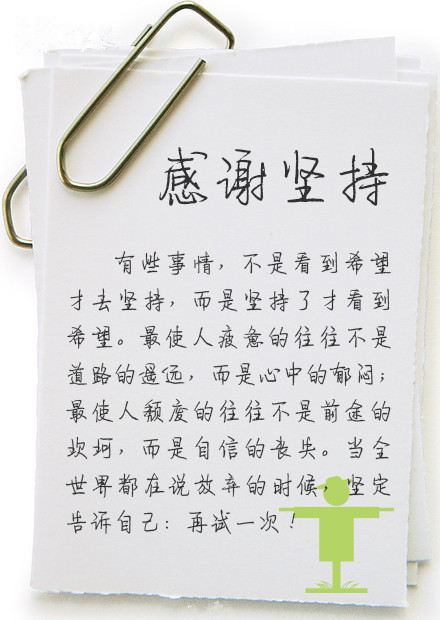 感谢坚持
有些事情，不是看到希望
才去坚持，而是坚持了才看到
希望。最使人疲惫的往往不是
道路的遥远，而是心中的郁闷；
最使人颓废的往往不是前途的
坎坷，而是自信的丧失。当全
世界都在说放弃的时候，坚定
告诉自己：再试一次！